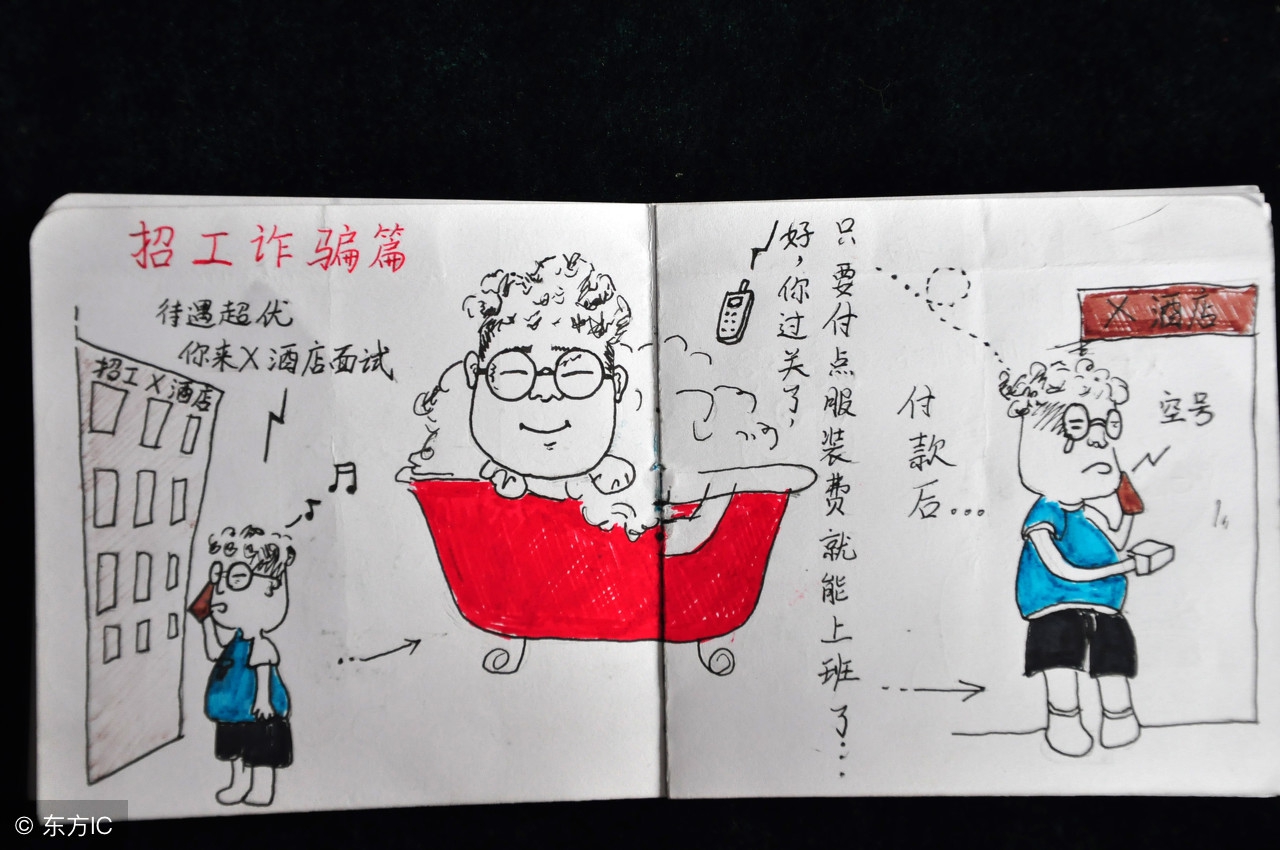 招工诈骗篇
待遇超优
你来X酒店面试
招工X酒店
好，你过关了，
只要付点服装费就能上班了...
付款后...
X酒店
空号
© 东方IC